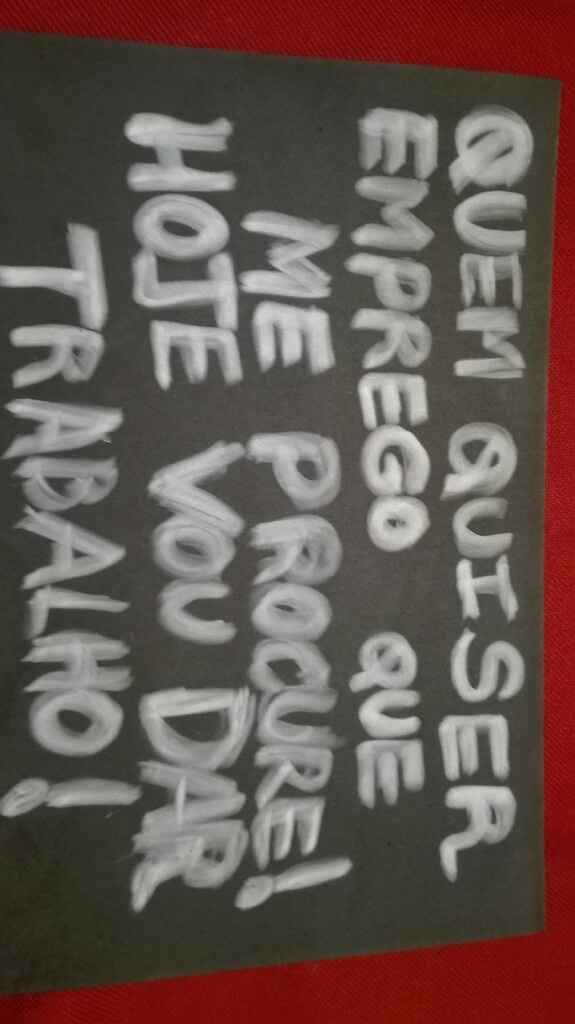 QUEM QUISER
EMPREGO QUE
ME PROCURE!
HOJE VOU DAR
TRABALHO!